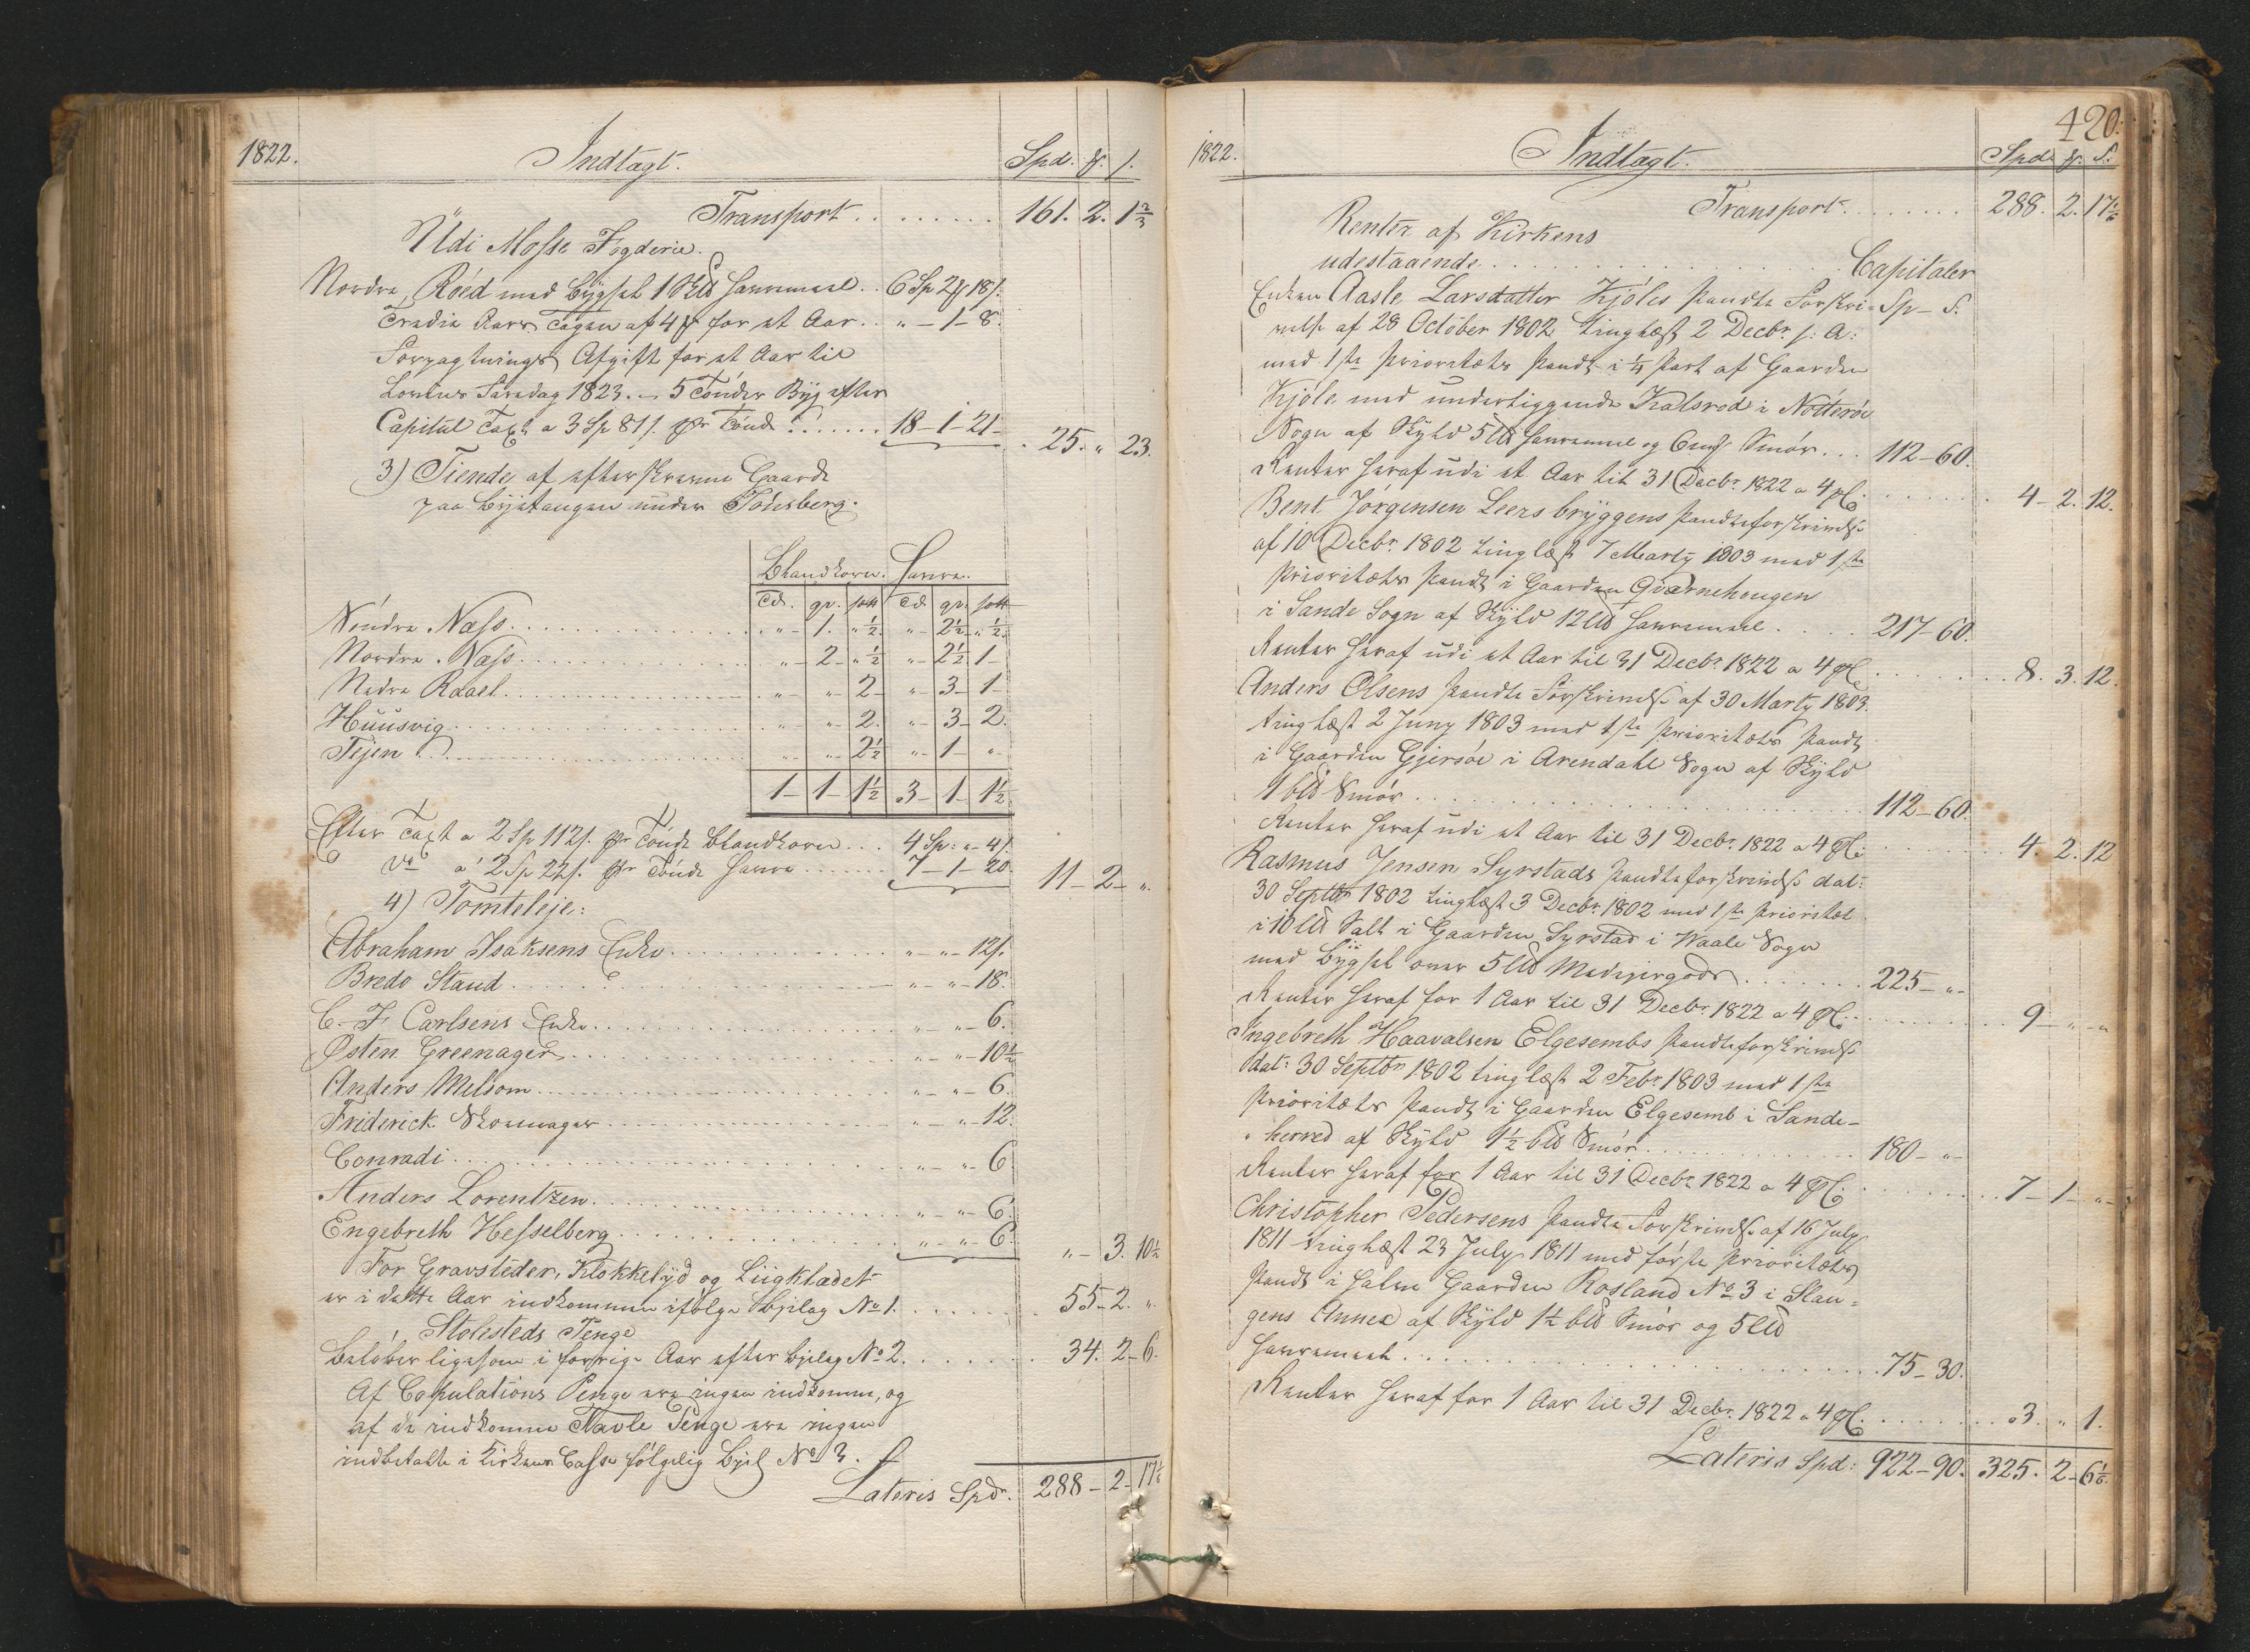 1822.
Indtægt.
Spd. ƺ. s.
Transport . . . . . . . . 161. 2. 1 2/3
Udi Mosse Fogderie.
Nordre Röed med bygsel 1 Skld Havremeel . . 6 Sp 2 ƺ 18 s.
Tredie Aars Tagen af 4 ƺ for et Aar . . „ – 1 – 8.
Forpagtnings Afgift for et Aar til
Faredag 1823. – 5 Tönder Byg efter
Capitul Taxt a 3 Sp 81 s. pr Tönde . . . . . . 18 – 1 – 21 –
25. „ 23.
3) Tiende af efterskrevne Gaarde
paa under Tönsberg.
Blandkorn. Havre.
Td. qr. sott Td. qr. sott
Söndre Næss . . . „ – 1. „ ½ „ – 2½ „ ½
Nordre Næss . . . „ – 2 – „ ½ „ – 2½ 1 –
Nedre Rael . . . „ – „ – 2 – „ – 3 – 1 –
Huusvig . . . „ – „ – 2. „ – 3 – 2.
Tejen . . . „ – „ – 2½ „ – 1 – „ –
1 – 1 – 1½ 3 – 1 – 1½
Efter Taxt a 2 Sp 112 s. pr Tönde Blandkorn . . . 4 Sp: „ – 4 s.
do a 2 Sp 22 s. pr Tönde Havre . . . . . . 7 – 1 – 20.
11 – 2 – „
4) Tomteleje:
Abraham Isaksens Enke . . . „ – „ – 12 s.
Bredo Stand . . . „ – „ – 18.
C. F. Carlsens Enke . . . „ – „ – 6.
Østen Greenager . . . „ – „ – 10½
Anders Melsom . . . „ – „ – 6.
Friderick Skomager . . . „ – „ – 12.
Conradi . . . „ – „ – 6
Anders Lorentzen . . . „ – „ – 6.
Engebreth Hesselberg . . . „ – „ – 6.
„ – 3. 10½
For Gravsteder, Klokkelyd og Liigklædet
er i dette Aar indkommen ifölge Bjilag No 1. . . . 55 – 2. „
Stolesteds Penge
belöber ligesom i forrige Aar efter bjilag No 2. . . . 34. 2 – 6.
Af Copulations Penge ere ingen indkomne, og
af de indkomne Tavle Penge ere ingen
indbetalte i Kirkens Casse fölgelig Bjil No 3.
Lateris Spdr. 288 – 2 – 17 1/6
420.
1822.
Indtægt.
Spd. ƺ. S.
Transport . . . . . . . 288. 2. 17 1/6
Renter af Kirkens
udestaaende . . . . . . Capitaler
Enken Aasle Larsdatter Kjöles Pandte Forskri- Sp – S.
velse af 28 October 1802 tinglæst 2 Decbr s: A:
med 1ste Prioritets Pandt i ¼ Part af Gaarden
Kjöle med underliggende Kalsrod i Nötteröe
Sogn af Skyld 5 Lld Havremeel og Smör . . . 112 – 60.
Renter heraf udi et Aar til 31 Decbr. 1822 a 4 pC. . . . 4 – 2. 12.
Bent Jörgensen Leers bryggens Pandteforskrivelse
af 10 Decbr. 1802 tinglæst 7 Marty 1803 med 1ste
Prioritets Pandt i Gaarden Qværnehougen
i Sande Sogn af Skyld 12 Lld Havremeel . . . . 217 – 60.
Renter heraf udi et Aar til 31 Decbr. 1822 a 4 pC. . . . 8. 3. 12.
Anders Olsens Pandte Forskrivelse af 30 Marty 1803.
tinglæst 2 Juny 1803 med 1ste Prioritets Pandt
i Gaarden Gjersöe i Arendahl Sogn af Skyld
1 bld Smör . . . 112 – 60.
Renter heraf udi et Aar til 31 Decbr. 1822 a 4 pC. . . . 4. 2. 12
Rasmus Jensen Syrstads Pandteforskrivelse dat:
30 Septbr 1802 tinglæst 3 Decbr. 1802 med 1ste Prioritet
i 10 Lld Salt i Gaarden Syrstad i Waale Sogn
med Bygsel over 5 Lld . . . 225 – „ –
Renter heraf for 1 Aar til 31 Decbr. 1822 a 4 pC. . . . 9 – „ – „
Ingebreth Haavalsen Elgesembs Pandteforskrivelse
dat: 30 Septbr 1802 tinglæst 2 Febr. 1803 med 1ste
Prioritets Pandt i Gaarden Elgesemb i Sande-
„ herred af Skyld 1½ bld Smör . . . 180 – „ –
Renter heraf for 1 Aar til 31 Decbr. 1822 a 4 pC. . . . 7 – 1 – „ –
Christopher Pedersens Pandte Forskrivelse af 16 July
1811 tinglæst 23 July 1811 med förste Prioritets
Pandt i halve Gaarden Rosland No 3 i Slau-
gens Annex af Skyld 1½ bld Smör og 5 Lld
Havremeel . . . 75 – 30.
Renter heraf for 1 Aar til 31 Decbr. 1822 a 4 pC. . . . 3. „ 1.
Lateris Spd: 922 – 90. 325. 2 – 6 1/6